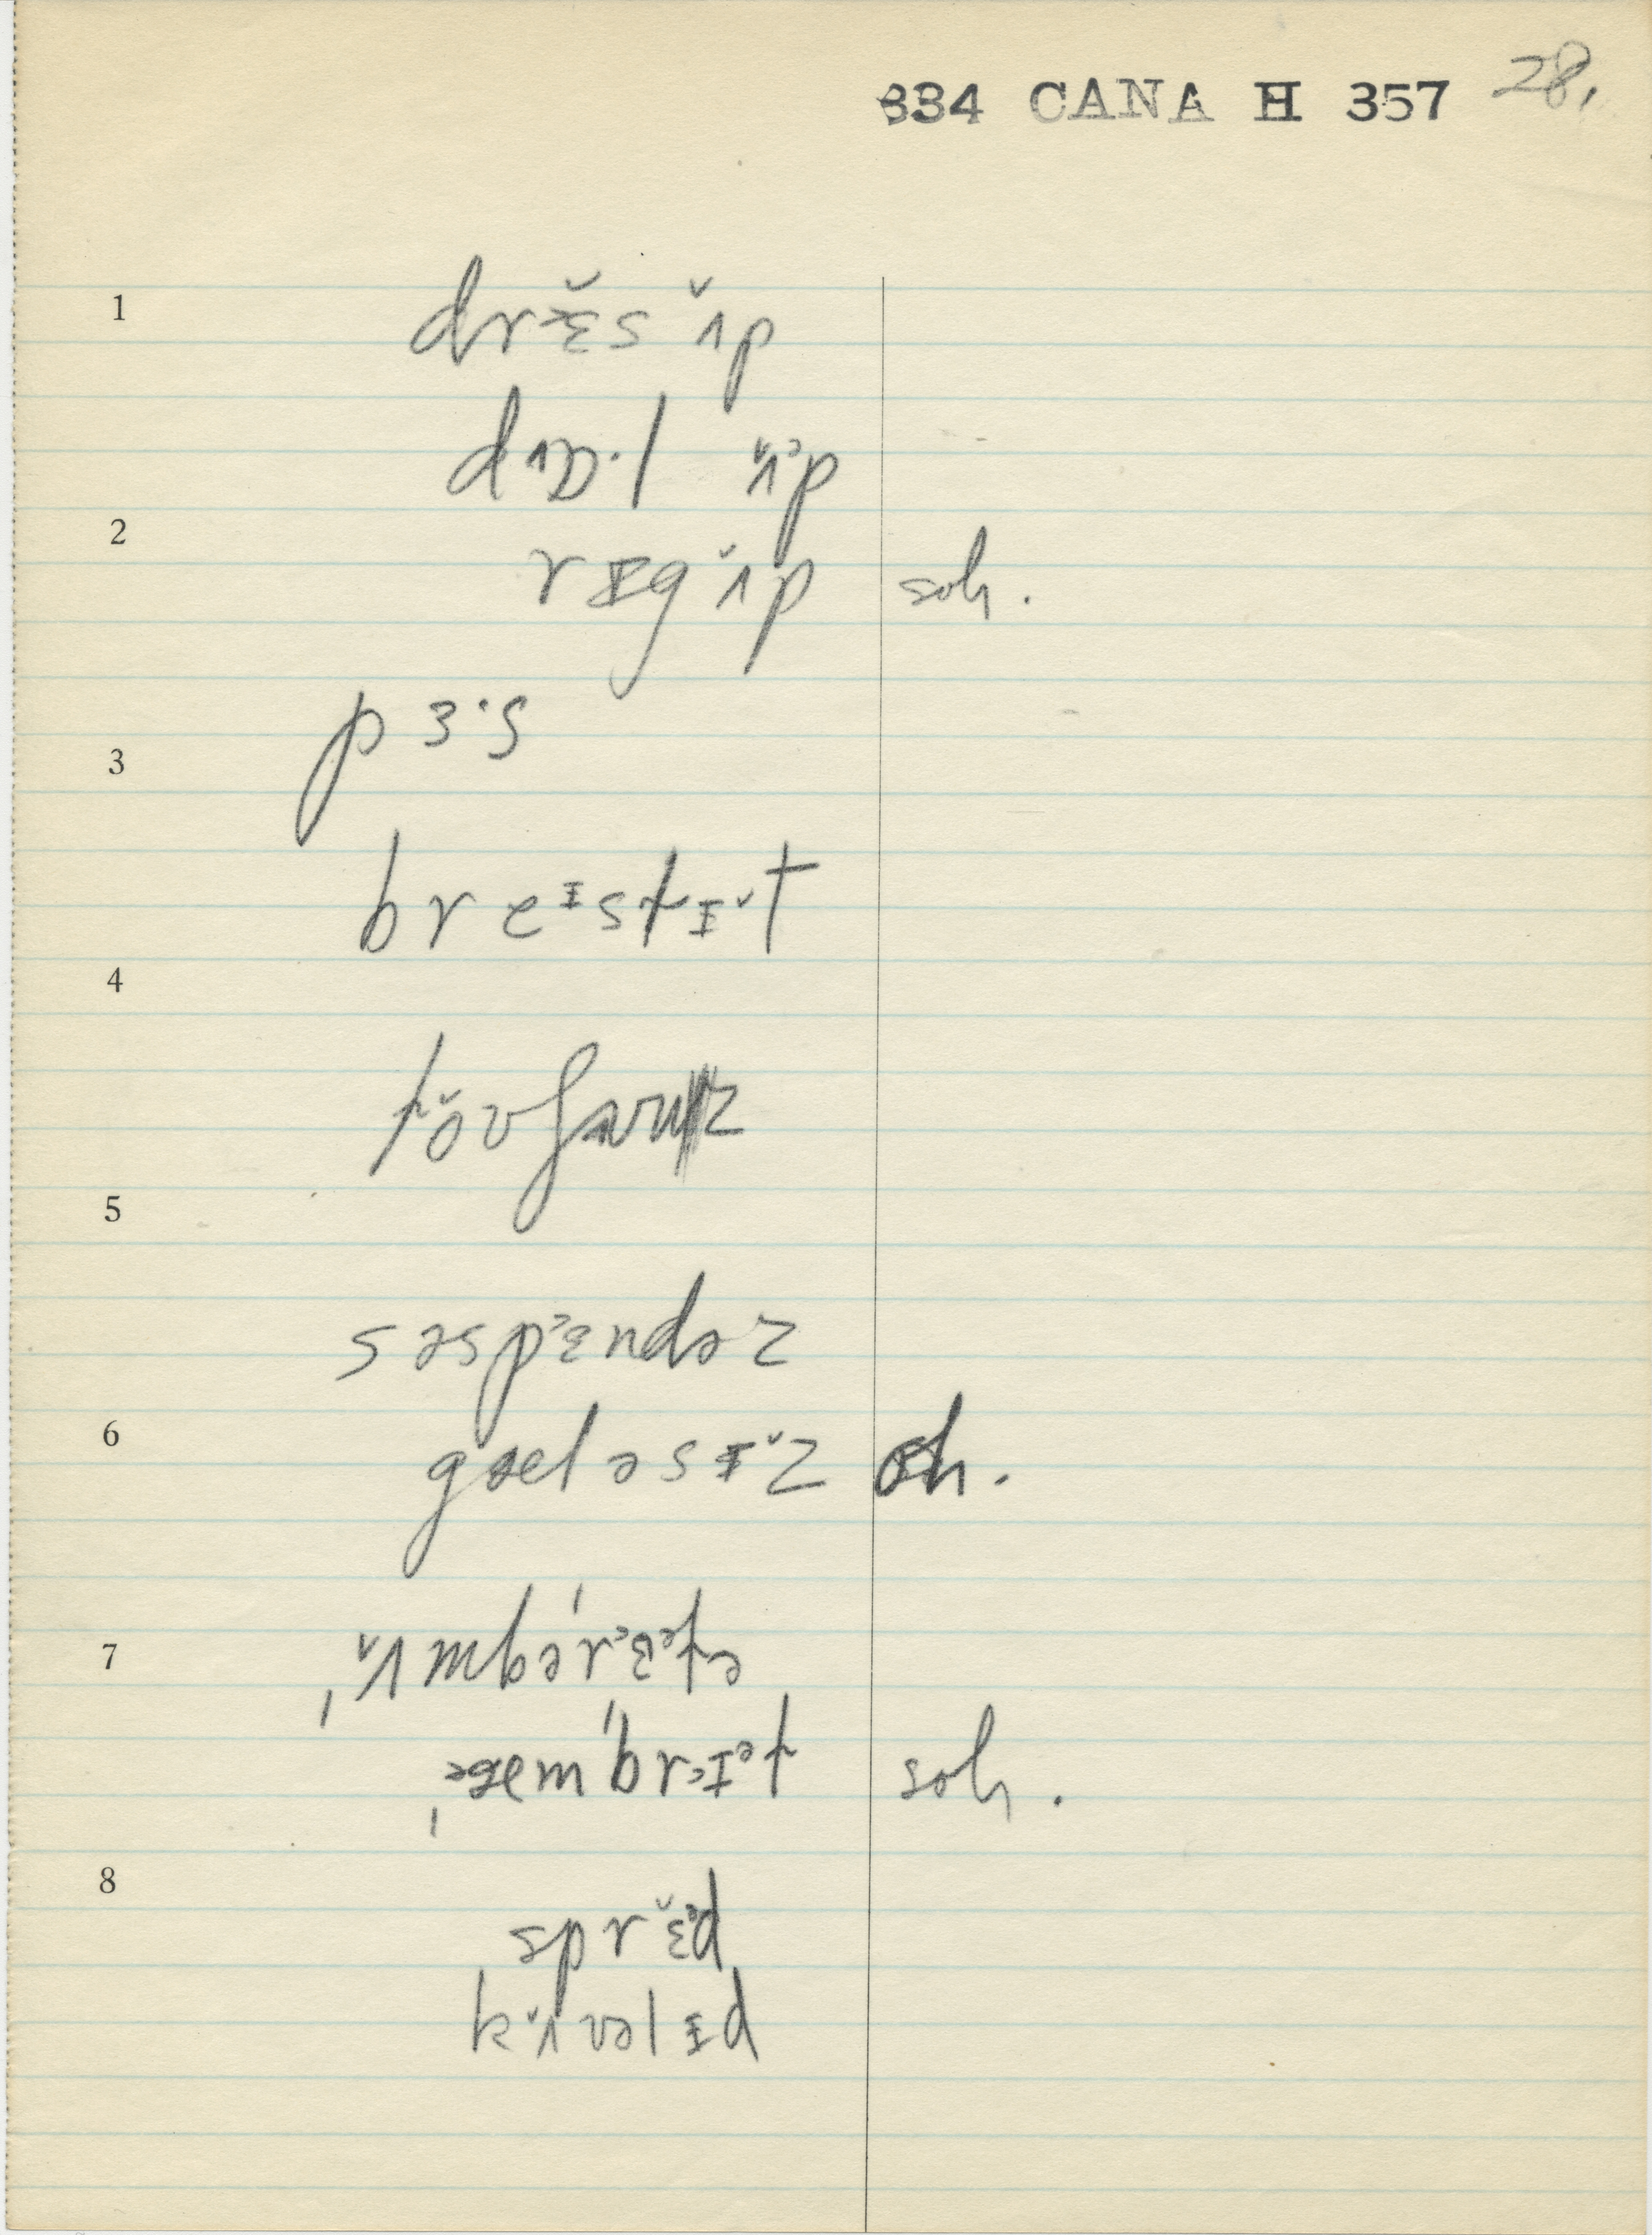 334 CANA H 357 28.
1
drɛ̆s ʌ̆p
dɒ·l ʌ̆p
2
rɪg ʌ̆p soh.
pɜ·s
3
breɪstɪ̆t
4
5
səspɛndəz
6
gæləsɪ̆z oh.
7
ˌʌ̆mbəˈrɛətə
ˌæmˈbrɪət soh.
8
sprɛ̆d
kʌ̆vəlɪd